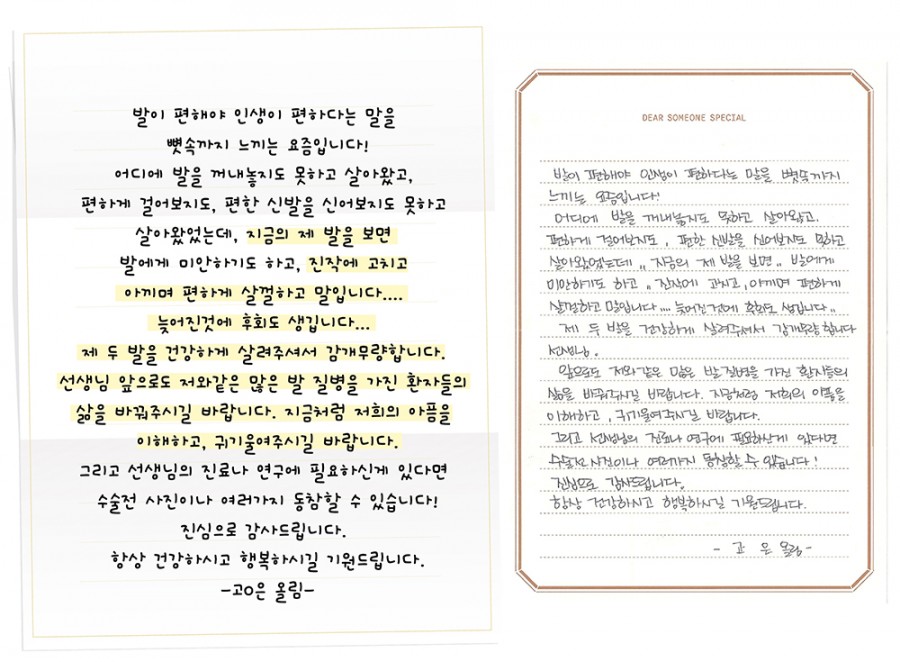 발이 편해야 인생이 편하다는 말을
뼛속까지 느끼는 요즘입니다!
어디에 발을 꺼내놓지도 못하고 살아왔고,
편하게 걸어보지도, 편한 신발을 신어보지도 못하고
살아왔었는데, 지금의 제 발을 보면
발에게 미안하기도 하고, 진작에 고치고
아끼며 편하게 살껄하고 말입니다....
늦어진것에 후회도 생깁니다...
제 두 발을 건강하게 살려주셔서 감개무량합니다.
선생님 앞으로도 저와같은 많은 발 질병을 가진 환자들의
삶을 바꿔주시길 바랍니다. 지금처럼 저희의 아픔을
이해하고, 귀기울여주시길 바랍니다.
그리고 선생님의 진료나 연구에 필요하신게 있다면
수술전 사진이나 여러가지 동참할 수 있습니다!
진심으로 감사드립니다.
항상 건강하시고 행복하시길 기원드립니다.
-고O은 올림-
DEAR SOMEONE SPECIAL
발이 편해야 인생이 편하다는 말을 뼛속까지
느끼는 요즘입니다!
어디에 발을 꺼내놓지도 못하고 살아왔고.
편하게 걸어보지도, 편한 신발을 신어보지도 못하고
살아왔었는데.. 지금의 제 발을 보면.. 발에게
미안하기도 하고.. 진작에 고치고, 아끼며 편하게
살껄하고 말입니다.... 늦어진것에 후회도 생깁니다..
제 두 발을 건강하게 살려주셔서 감개무량 합니다
선생님.
앞으로도 저와같은 많은 발 질병을 가진 환자들의
삶을 바꿔주시길 바랍니다. 지금처럼 저희의 아픔을
이해하고, 귀기울여주시길 바랍니다.
그리고 선생님의 진료나 연구에 필요하신게 있다면
수술전 사진이나 여러가지 동참할 수 있습니다!
진심으로 감사드립니다.
항상 건강하시고 행복하시길 기원드립니다.
- 고 은 올림 -